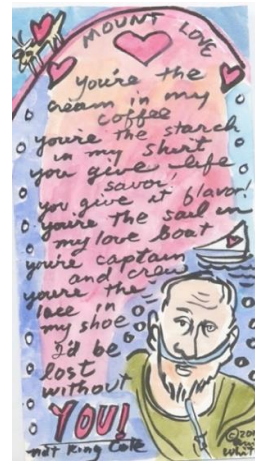 MOUNT LOVE
You're the
cream in my
coffee
you're the starch
in my shirt
you give life
savor!
you give it flavor!
you're the sail in
my love boat
you're captain
and crew
you're the
lace in
my shoe
I'd be
lost
without
YOU!
nat King Cole